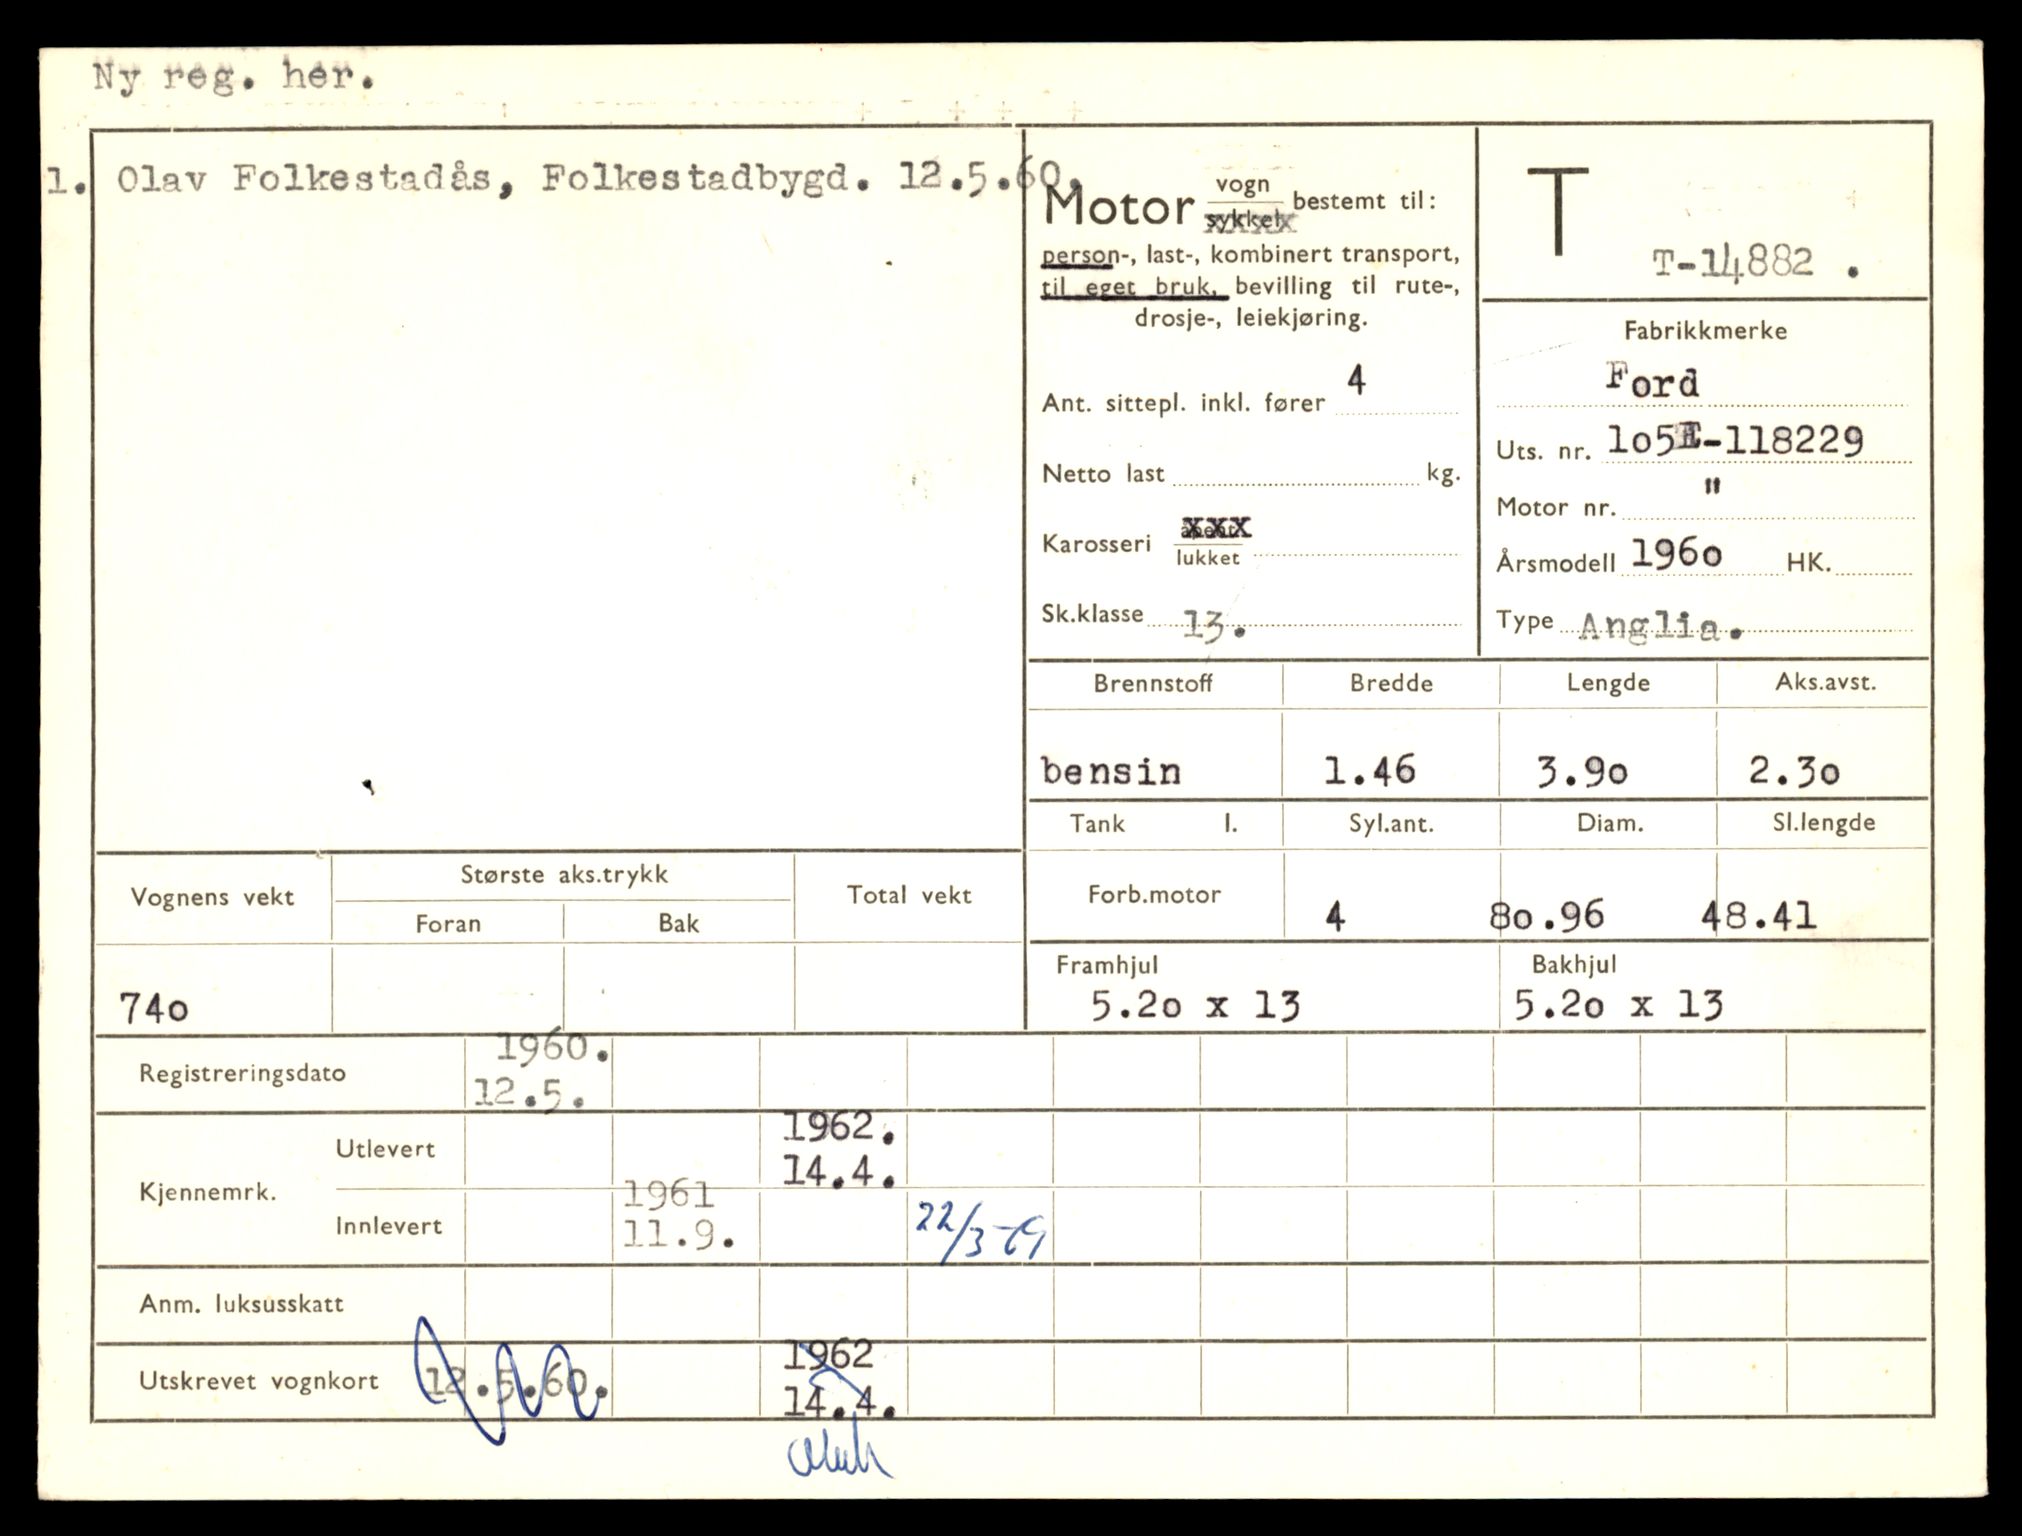 Ny reg. her.
1. Olav Folkestadås, Folkestadbygd. 12.5.60.
Motor vogn bestemt til:
sykkel
person-, last-, kombinert transport,
til eget bruk, bevilling til rute-,
drosje-, leiekjøring.
Ant. sittepl. inkl. fører 4
Netto last kg.
Karosseri åpent xxx
lukket
Sk.klasse 13.
T
T-14882 .
Fabrikkmerke
Ford
Uts. nr. 1o5E-118229
Motor nr. "
Årsmodell 196o HK.
Type Anglia.
Brennstoff Bredde Lengde Aks.avst.
bensin 1.46 3.9o 2.3o
Tank l. Syl.ant. Diam. Sl.lengde
Forb.motor 4 8o.96 48.41
Framhjul Bakhjul
5.2o x 13 5.2o x 13
Vognens vekt Største aks.trykk Total vekt
Foran Bak
74o
Registreringsdato 1960.
12.5.
Kjennemrk. Utlevert 1962.
14.4.
Innlevert 1961
11.9.
22/3-69
Anm. luksusskatt
Utskrevet vognkort 12.5.60. 1962
14.4.